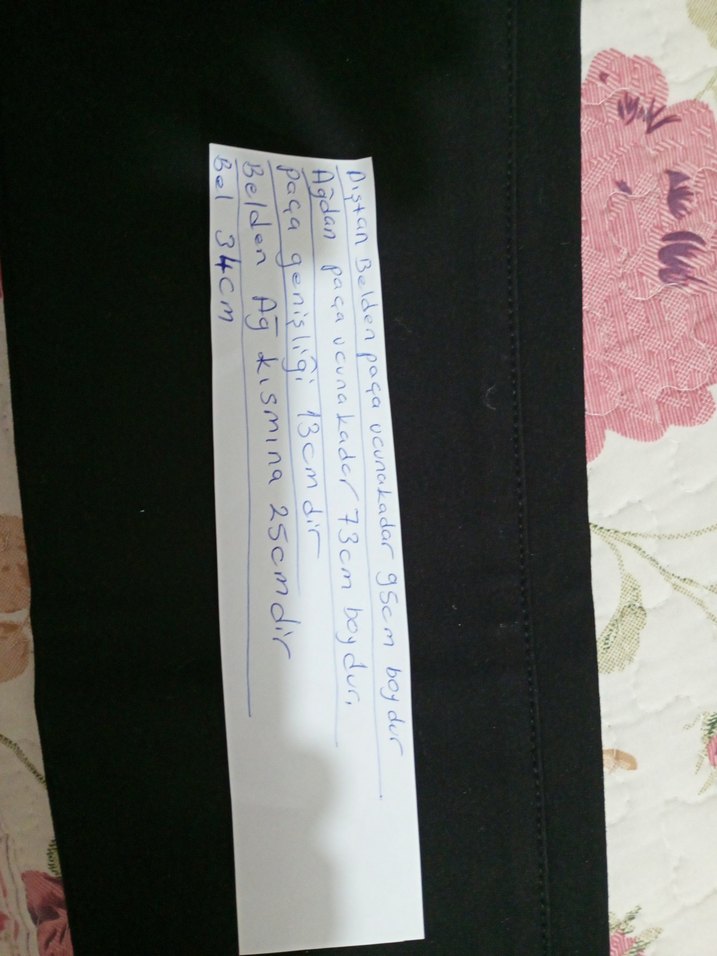 Dıştan Belden paça ucunakadar 95cm boydur
Ağdan paça ucuna kadar 73cm boydur,
paça genişliği 13cmdir
Belden Ağ kısmına 25cmdir
Bel 34cm